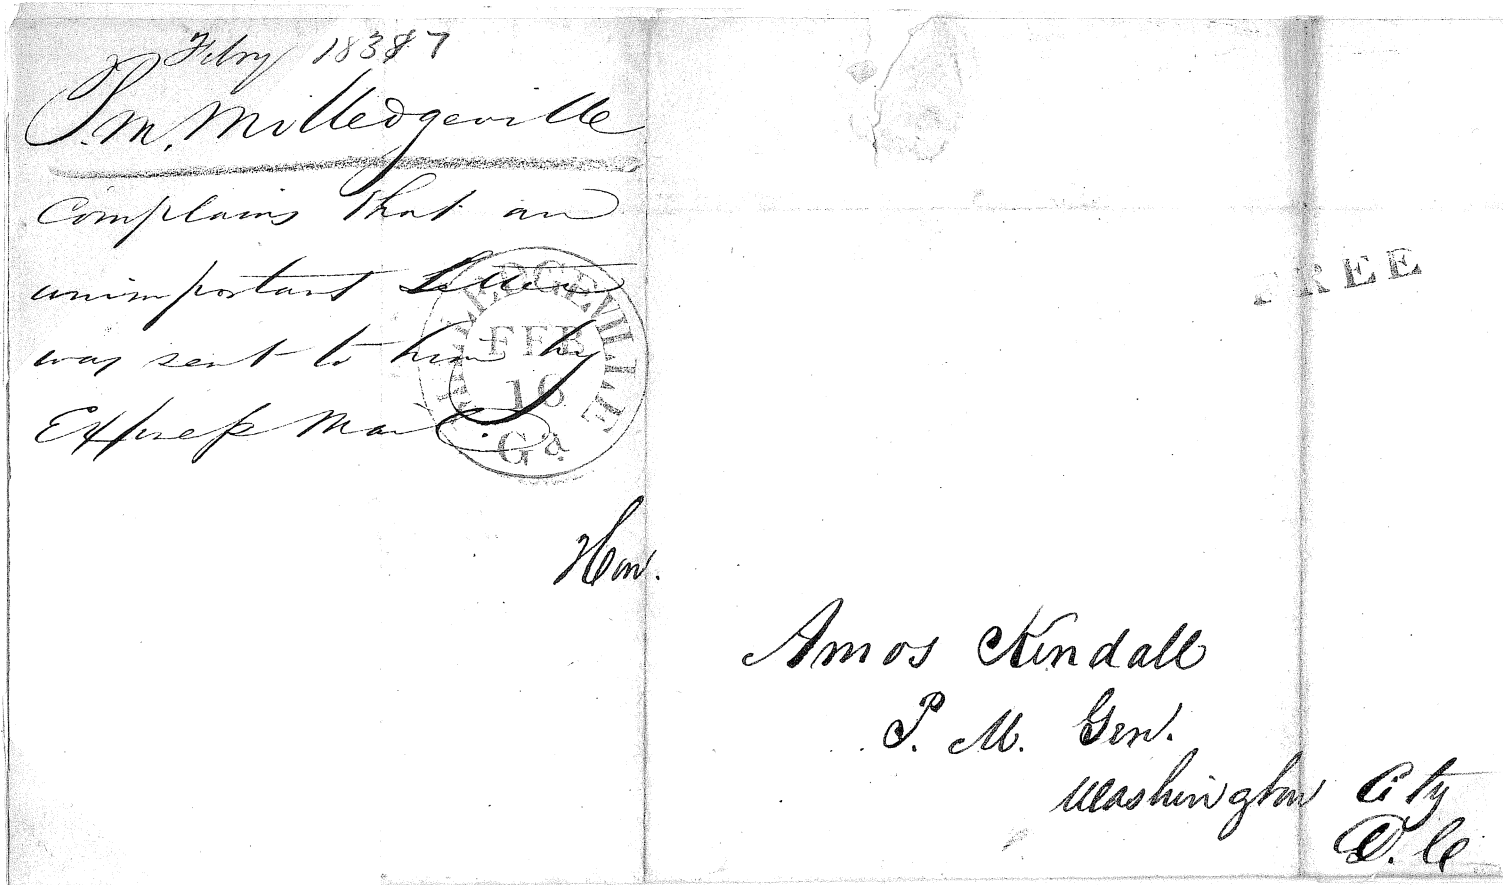 Febry 1837
P.M. Milledgeville
Complains that an
unimportant Letter
was sent to him by
Express Mail.
MILLEDGEVILLE
FEB
16
Ga
FREE
Hon.
Amos Kendall
P. M. Gen.
Washington City
D. C